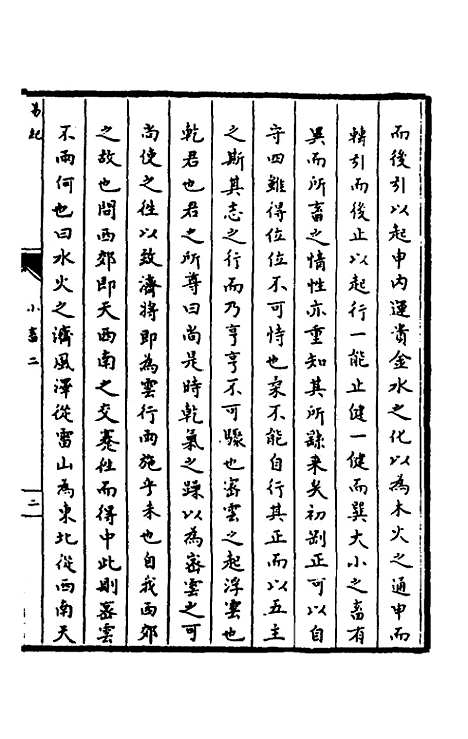 而後引以起申內運賁金水之化以為木火之通申而
轉引而後止以起行一能止健一健而巽大小之畜有
異而所畜之情性亦重知其所錄來矣初剛正可以自
守四雖得位位不可恃也柔不能自行其正而以五主
之斯其志之行而乃亨亨不可驟也密雲之起浮雲也
乾君也君之所尊曰尚是時乾氣之踈以為密雲之可
尚使之徃以致濟將即為雲行雨施乎未也自我西郊
之故也問西郊即天西南之交蹇徃而得中此則密雲
不雨何也曰水火之濟風澤從雷山為東北從西南天
易纪
小畜二
二